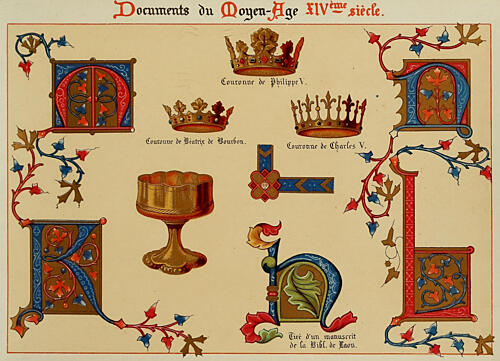 Documents du Moyen-Age XIVème siècle.
Couronne de Philippe V.
Couronne de Béatrix de Bourbon.
Couronne de Charles V.
M
N
R
L
h
Tiré d'un manuscrit
de la Bibl. de Laon.